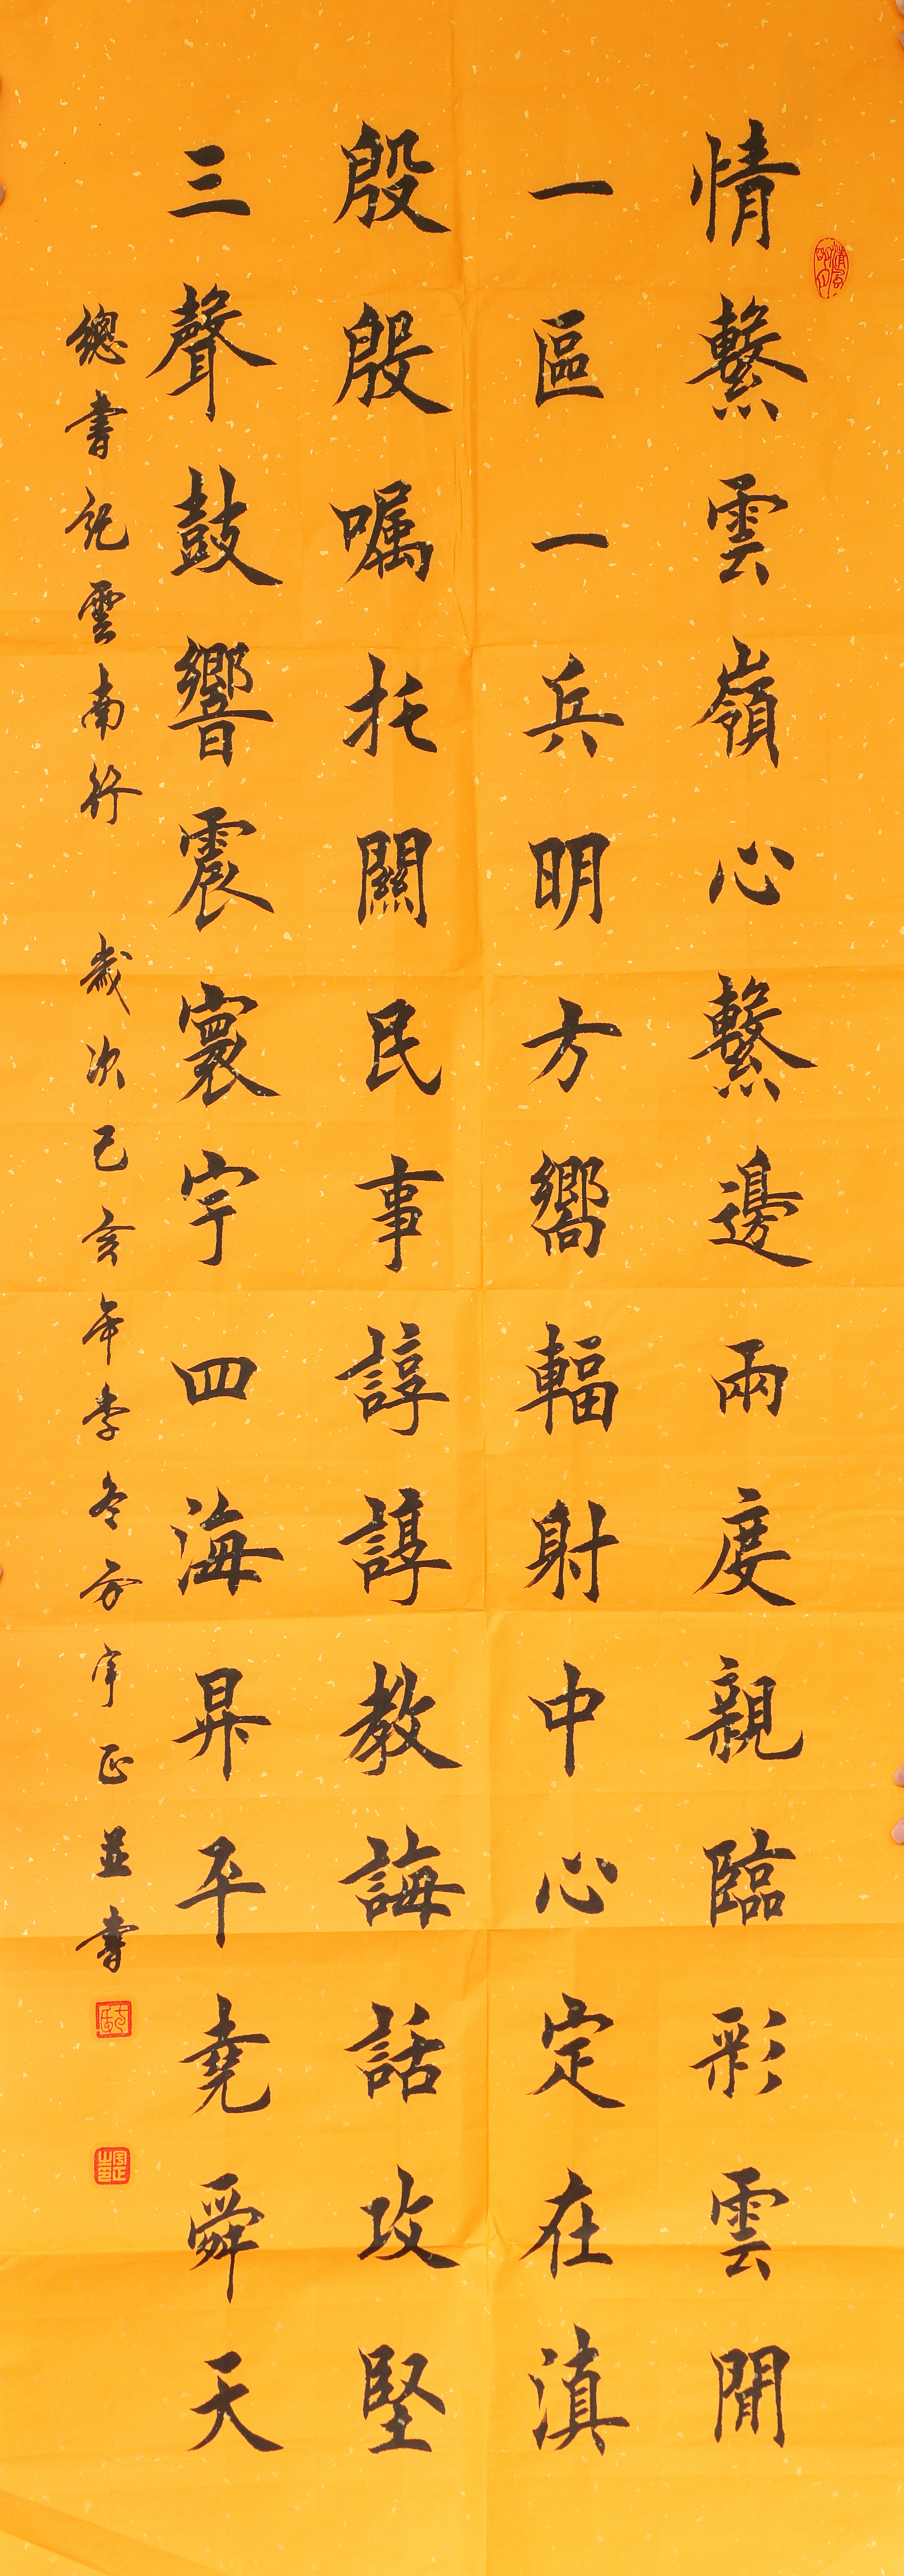 情繫雲嶺心繫邊兩度親臨彩雲間
一區一兵明方嚮輻射中心定在滇
殷殷嘱托關民事諄諄教誨話攻堅
三聲鼓響震寰宇四海昇平堯舜天
總書記雲南行 歲次己亥年季冬方宇正並書